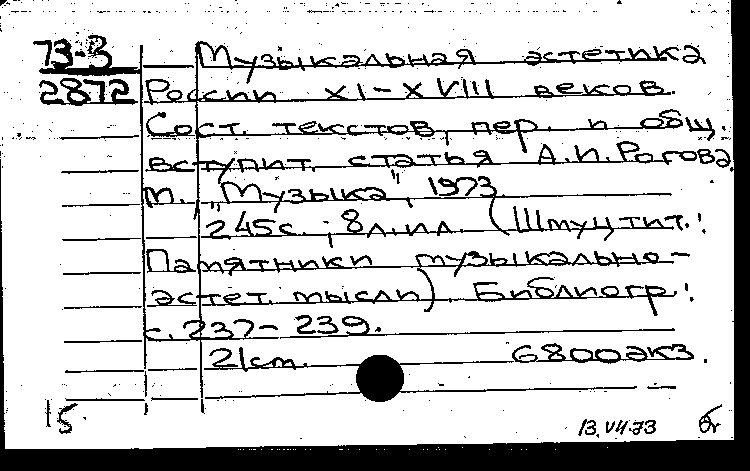 73-3 Музыкальная эстетика
2872 России XI-XVIII веков.
Сост. текстов, пер. и общ.
вступит. статья А.И.Рогова
М., "Музыка", 1973
245с.; 8л.ил. (Шмуцтит.:
Памятники музыкально-
эстет. мысли). Библиогр:
с.237-239.
21см. 6800экз.
15.
13.VII.73